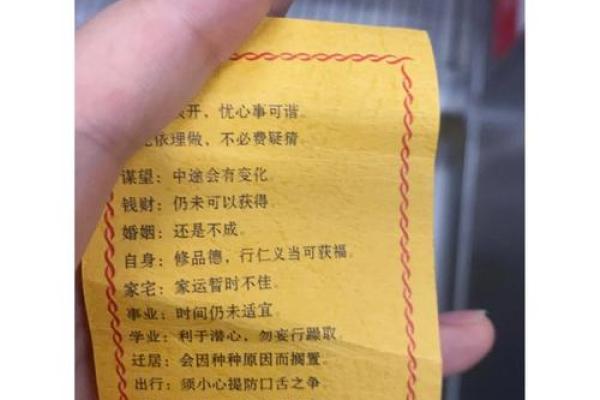 开，忧心事可谐。
依理做，不必费疑猜。
谋望：中途会有变化。
钱财：仍未可以获得。
婚姻：还是不成。
自身：修品德，行仁义当可获福。
家宅：家运暂时不佳。
事业：时间仍未适宜。
学业：利于潜心，勿妄行躁取。
迁居：会因种种原因而搁置。
出行：须小心提防口舌之争。